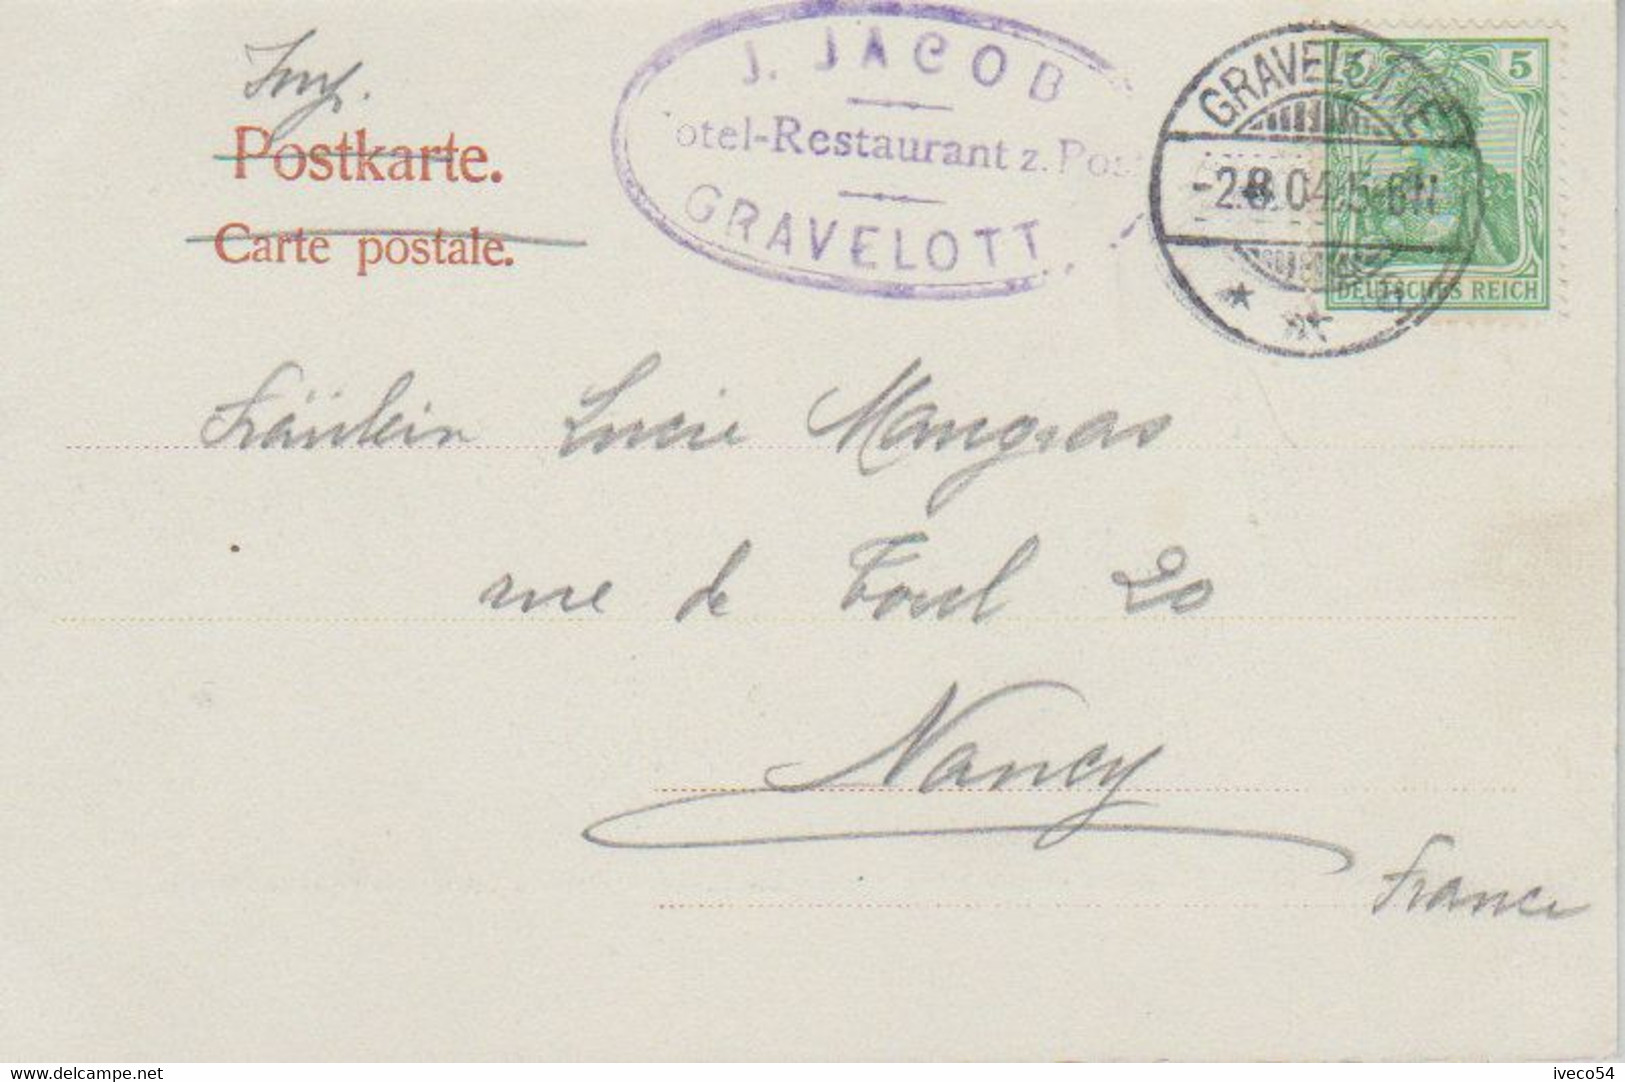 Imp.
Postkarte.
Carte postale.
J. JACOB
otel-Restaurant z. Pos
GRAVELOTT
GRAVELOTTE
-2.8.04.5-6N
5 5
DEUTSCHES REICH
Fräulein Lucie Mangras
rue de Toul 20
Nancy
France
iveco54